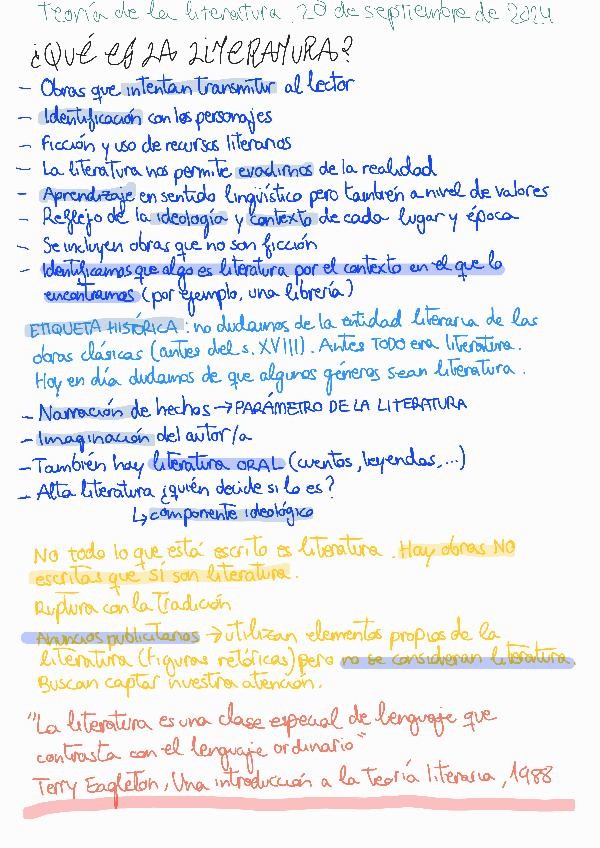 Teoría de la literatura, 20 de septiembre de 2024
¿QUÉ ES LA LITERATURA?
- Obras que intentan transmitir al lector
- Identificación con los personajes
- Ficción y uso de recursos literarios
- La literatura nos permite evadirnos de la realidad
- Aprendizaje en sentido lingüístico pero también a nivel de valores
- Reflejo de la ideología y contexto de cada lugar y época
- Se incluyen obras que no son ficción
- Identificamos que algo es literatura por el contexto en el que lo
encontramos (por ejemplo, una librería)
ETIQUETA HISTÓRICA: no dudamos de la entidad literaria de las
obras clásicas (antes del s. XVIII). Antes TODO era literatura.
Hoy en día dudamos de que algunos géneros sean literatura.
- Narración de hechos → PARÁMETRO DE LA LITERATURA
- Imaginación del autor/a
- También hay literatura ORAL (cuentos, leyendas, ...)
- Alta literatura ¿quién decide si lo es?
↳ componente ideológico
No todo lo que está escrito es literatura. Hay obras NO
escritas que sí son literatura.
Ruptura con la tradición
Anuncios publicitarios → utilizan elementos propios de la
literatura (figuras retóricas) pero no se consideran literatura.
Buscan captar nuestra atención.
"La literatura es una clase especial de lenguaje que
contrasta con el lenguaje ordinario"
Terry Eagleton, Una introducción a la Teoría literaria, 1988